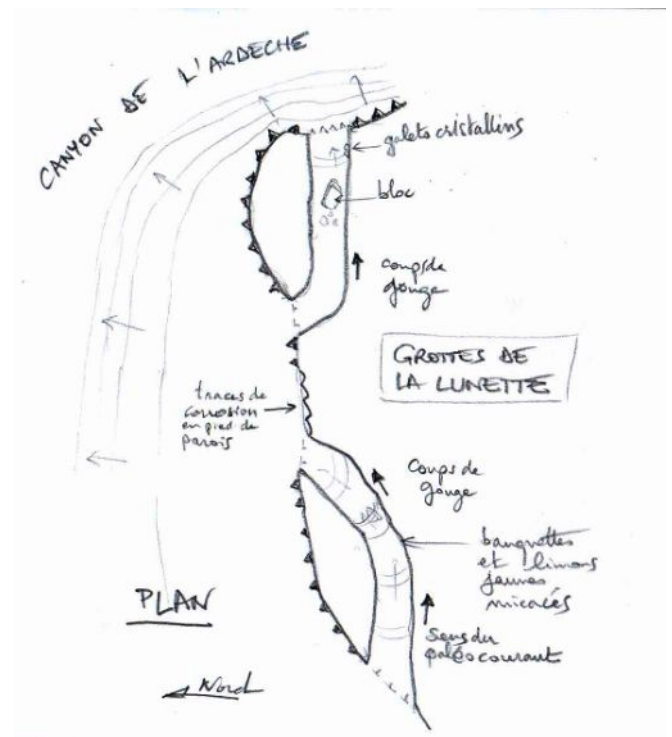 CANYON DE L'ARDECHE
galets cristallins
bloc
coups de
gouge
GROTTES DE
LA LUNETTE
traces de
corrosion
en pied de
parois
Coups de
gouge
banquettes
et limons
jaunes
micacés
PLAN
Sens du
paléocourant
Nord